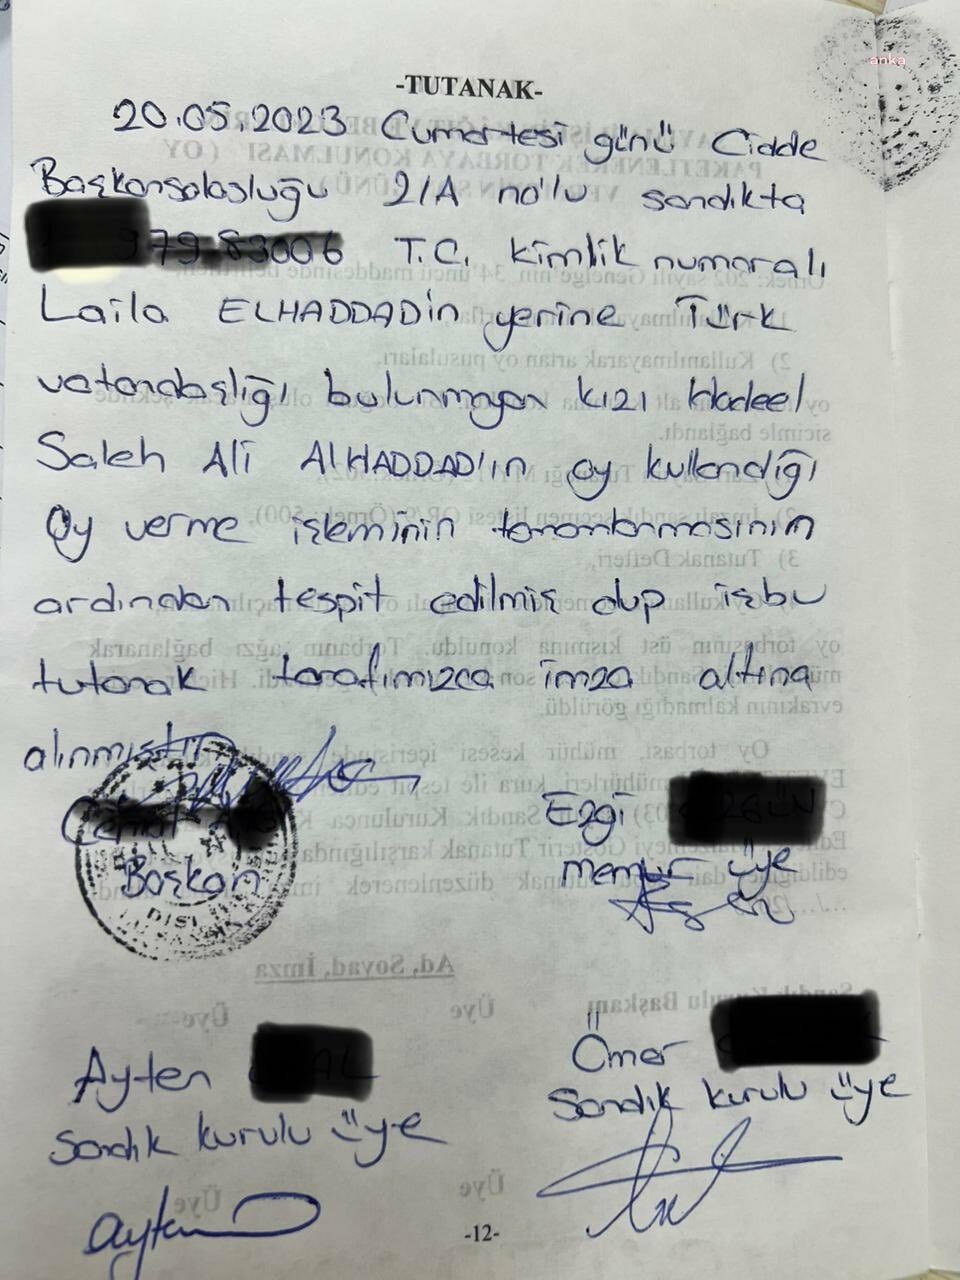 anka
-TUTANAK-
20.05.2023 Cumartesi günü Cidde
Başkonsolosluğu 2/A no'lu sandıkta
979.83006 T.C. kimlik numaralı
Laila ELHADDADin yerine Türk
vatandaşlığı bulunmayan kızı Hadeel
Saleh Ali AlHADDAD'ın oy kullandığı
Oy verme işleminin tamamlanmasının
ardından tespit edilmiş olup işbu
tutanak tarafımızca imza altına
alınmıştır
Cemal
Başkan
Ezgi
memur üye
Ad, Soyad, İmza
Üye
Üye
Sandık Kurulu Başkanı
Ayten
Sandık kurulu üye
Ömer
Sandık kurulu üye
Üye
Üye
ayten
-12-